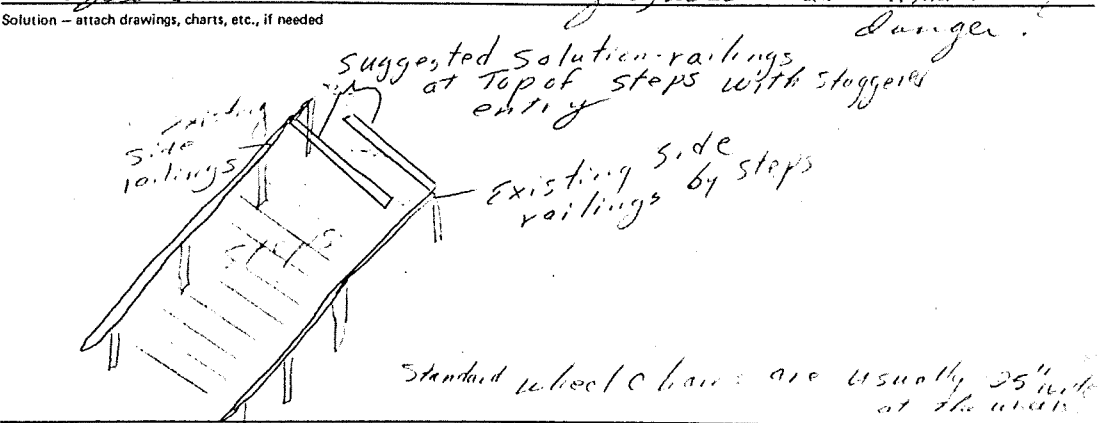 Solution – attach drawings, charts, etc., if needed
danger!
suggested solution-railings
at Top of steps with staggered
entry
existing
side
railings
Existing side
railings by steps
steps
Standard wheel chairs are usually 25" wide
at the